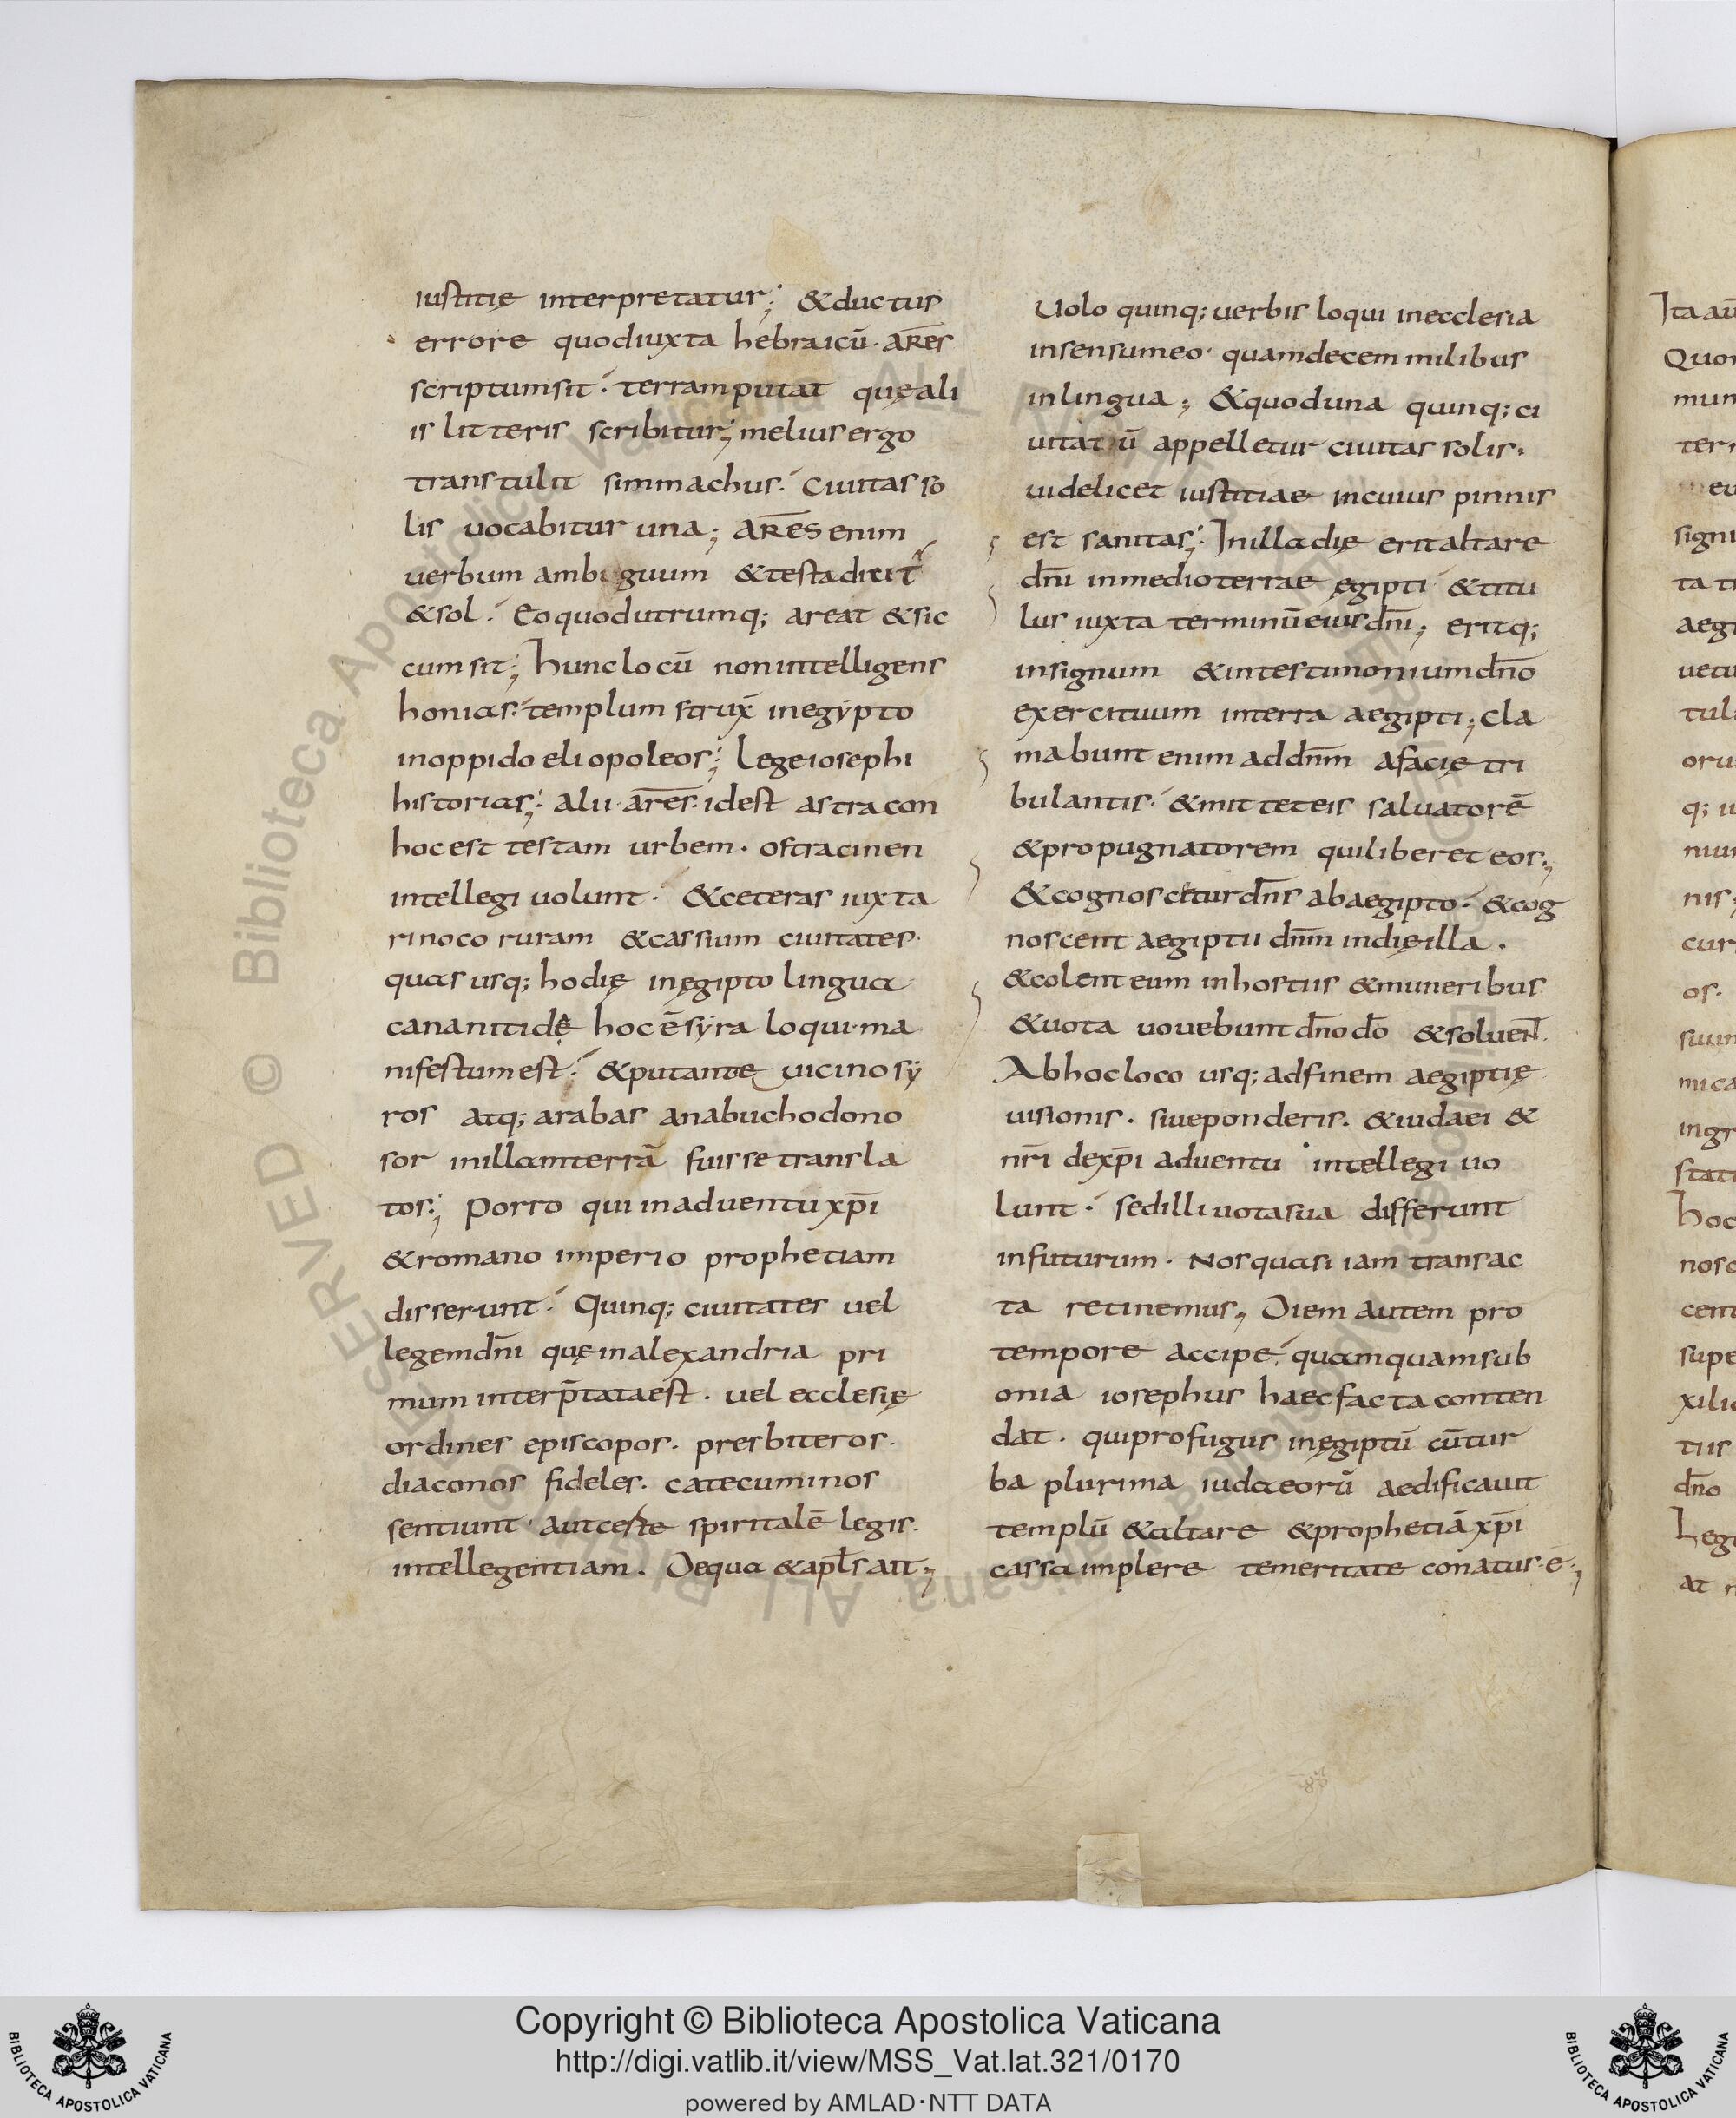 iustitię interpretatur; &ductus
errore quodiuxta hebraicū· ARES̄
scriptumsit· terramputat quęali
is litteris scribitur; meliusergo
transtulit simmachus· Ciuitasso
lis uocabitur una; ARES̄ enim
uerbum ambiguum &testadicit
&sol· Eoquodutrumq; areat &sic
cumsit; hunclocū nonintelligens
honias· templum strux̄ inegẏpto
inoppido eliopoleos; Legeiosephi
historias; alii· ares̄· idest astracon
hocest testam urbem· ostracinen
intellegi uolunt· &ceteras iuxta
rinocoruram &cassium ciuitates·
quas usq; hodię inęgipto lingua
cananitidę hocē sẏra loqui· ma
nifestumest· &putante uicinosẏ
ros atq; arabas anabuchodono
sor inillamterrā fuissetransla
tos; Porro qui inaduentu xp̄i
&romano imperio prophetiam
disserunt· Quinq; ciuitates uel
legemdn̄i quęinalexandria pri
mum interp̄tataest· uel ecclesię
ordines episcopos· presbiteros·
diaconos fideles· catecuminos
sentiunt· autceste spiritalē legis·
intellegentiam· Dequa &apl̄s ait;
Uolo quinq; uerbis loqui inecclesia
insensumeo· quamdecem milibus
inlingua; &quoduna quinq; ci
uitatū appelletur ciuitas solis·
uidelicet iustitiae incuius pinnis
est sanitas; Inilladię eritaltare
dn̄i inmedioterrae ęgipti &titu
lus iuxta terminūeiusdn̄i; eritq;
insignum &intestimoniumdn̄o
exercituum interra aegipti; cla
mabunt enim addn̄m afacię tri
bulantis· &mitteteis saluatorē
&propugnatorem quiliberet eos;
&cognosceturdn̄s abaegipto· &cog
noscent aegiptii dn̄m indięilla·
&colent eum inhostiis &muneribus
&uota uouebunt dn̄o dō &soluent·
Abhocloco usq; adfinem aegiptię
uisionis· siueponderis· &iudaei &
nr̄i dexp̄i aduentu intellegi uo
lunt· sedilli uotasua differunt
infuturum· Nosquasi iam transac
ta retinemus; Diem autem pro
tempore accipe· quamquamsub
onia iosephus haecfacta conten
dat· quiprofugus inęgiptū cūtur
ba plurima iudaeorū aedificauit
templū &altare &prophetiā xp̄i
cassa implere temeritate conatus· ē·;
Ita au
Quon
mun
ter
signi
ta ti
aegi
uetu
tul
oru
q; u
niu
nis
cur
os·
suum
mica
ingr
stati
hoc
nosc
cent
supe
xili
tiis
dn̄o
Legi
at n
Copyright © Biblioteca Apostolica Vaticana
http://digi.vatlib.it/view/MSS_Vat.lat.321/0170
powered by AMLAD·NTT DATA
BIBLIOTECA APOSTOLICA VATICANA
BIBLIOTECA APOSTOLICA VATICANA